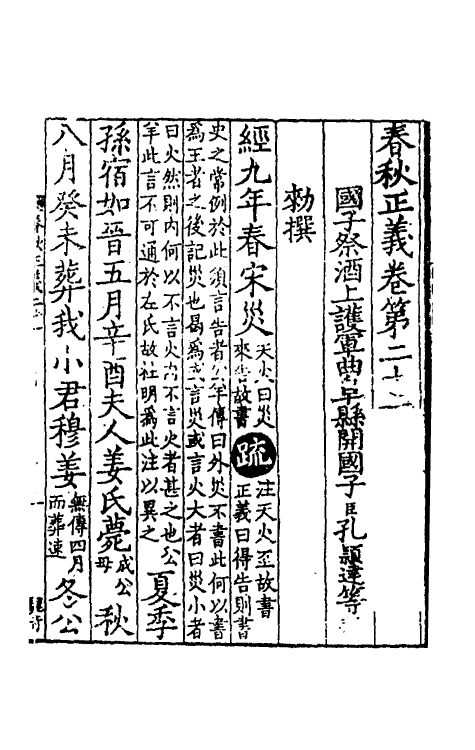 春秋正義卷第二十二
國子祭酒上護軍曲阜縣開國子臣孔穎達等
勑撰
經九年春宋災天火曰災來告故書疏注天火至故書正義曰得告則書
史之常例於此須言告者公羊傳曰外災不書此何以書
爲王者之後記災也曷爲或言災或言火大者曰災小者
曰火然則內何以不言火內不言火者甚之也公
羊此言不可通於左氏故杜明爲此注以異之夏季
孫宿如晉五月辛酉夫人姜氏薨成公母秋
八月癸未葬我小君穆姜無傳四月而葬速冬公